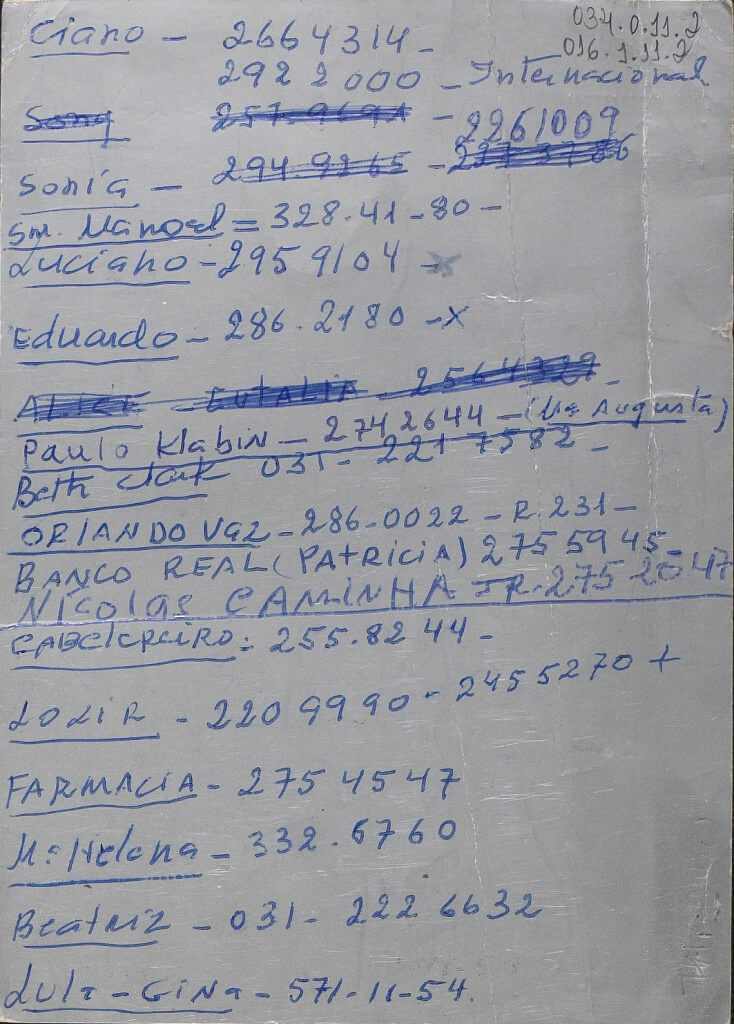 034.0.11.2
016.1.11.2
Ciano - 2664314 -
2922000 - Internacional
Sony 257.9691 - 2261009
Sonia - 294.9265 - 2273786
Sr. Manoel = 328.41-80 -
Luciano - 2959104 - x
Eduardo - 286.2180 - x
ALICE - EUTALIA - 2564329 -
Paulo Klabin - 2742644 - (Mª Augusta)
Beth Clark 031 - 221 7582 -
ORLANDO VAZ - 286-0022 - R. 231 -
BANCO REAL (PATRICIA) 2755945 -
NICOLAE CAMINHA JR. 2752047
CABELEREIRO: 255.8244 -
LOLIR - 2209990 - 2455270 +
FARMACIA - 2754547
Mª Helena - 332.6760
Beatriz - 031 - 222 6632
Lula - GINA - 571-11-54.